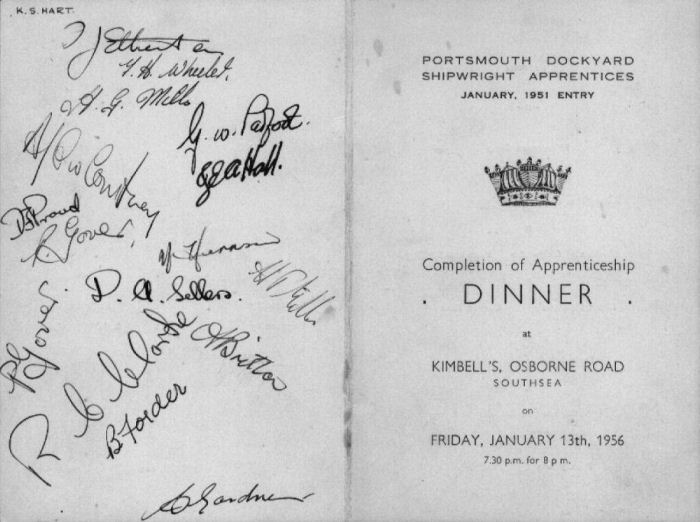 K. S. HART.
F. H. Wheeler.
H. G. Mills
G. W. Parfoot.
A. Hall.
D. Proud
Gover.
D. A. Sellers.
P Gover.
Britton
R C Clarke
B Forder
Gardner
PORTSMOUTH DOCKYARD
SHIPWRIGHT APPRENTICES
JANUARY, 1951 ENTRY
Completion of Apprenticeship
. DINNER .
at
KIMBELL'S, OSBORNE ROAD
SOUTHSEA
on
FRIDAY, JANUARY 13th, 1956
7.30 p.m. for 8 p m.